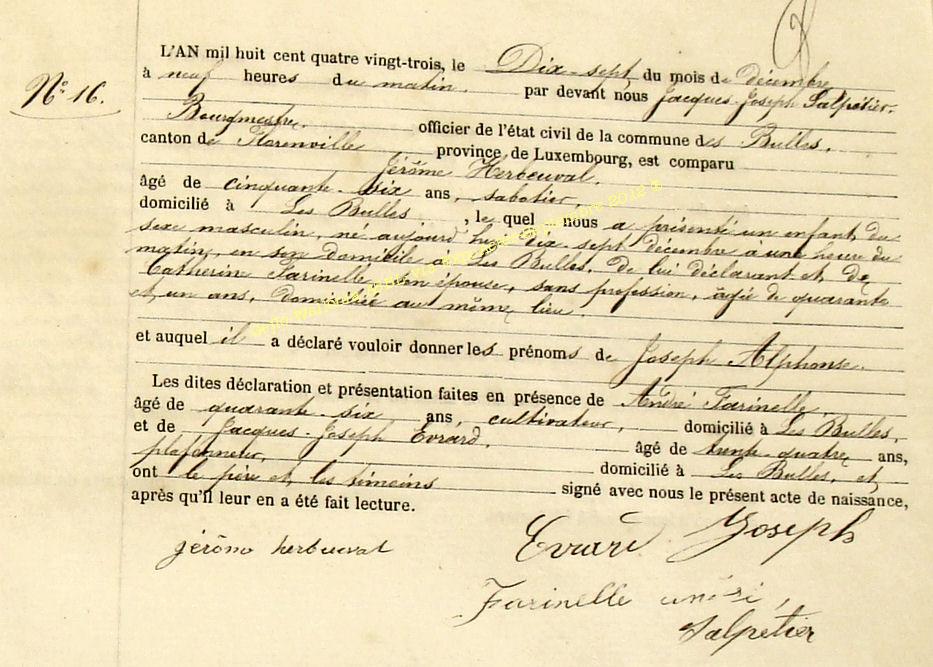 L'AN mil huit cent quatre vingt-trois, le Dix-sept du mois de décembre
à neuf heures du matin par devant nous Jacques-Joseph Salpétier.
N° 16.
Bourgmestre officier de l'état civil de la commune des Bulles,
canton de Florenville province de Luxembourg, est comparu
Jérôme Herbeuval,
âgé de cinquante-six ans, sabotier,
domicilié à Les Bulles, le quel nous a présenté un enfant du
sexe masculin, né aujourd'hui dix sept décembre à une heure du
matin, en son domicile à Les Bulles, de lui déclarant et de
Catherine Farinelle son épouse, sans profession, âgée de quarante
et un ans, domiciliée au même lieu.
et auquel il a déclaré vouloir donner les prénoms de Joseph Alphonse.
Les dites déclaration et présentation faites en présence de André Farinelle
âgé de quarante-six ans, cultivateur, domicilié à Les Bulles,
et de Jacques-Joseph Evrard, âgé de trente-quatre ans,
plafonneur, domicilié à Les Bulles, et
ont le père et les témoins signé avec nous le présent acte de naissance,
après qu'il leur en a été fait lecture.
jérôme herbeuval Evrard Joseph
Farinelle andré,
Salpétier